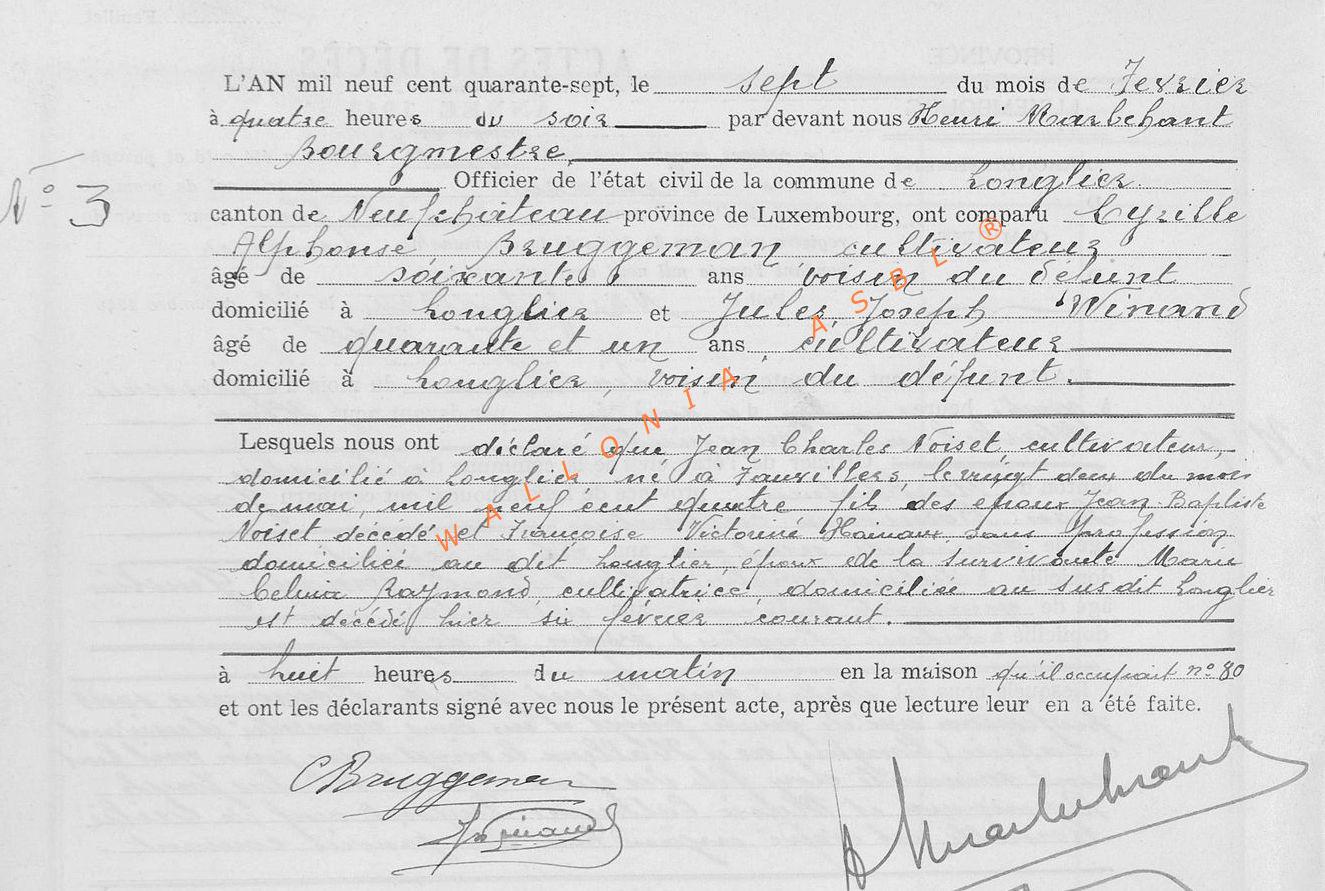 L'AN mil neuf cent quarante-sept, le sept du mois de Fevrier
à quatre heures du soir par devant nous Henri Marbehant
Bourgmestre,
N° 3
Officier de l'état civil de la commune de Longlier.
canton de Neufchâteau province de Luxembourg, ont comparu Cyrille
Alphonse Bruggeman cultivateur
âgé de soixante ans voisin du défunt
domicilié à Longlier et Jules Joseph Winand
âgé de quarante et un ans, cultivateur
domicilié à Longlier, voisin du défunt.
Lesquels nous ont déclaré que Jean Charles Noiset, cultivateur,
domicilié à Longlier né à Fauvillers, le vingt deux du mois
de mai, mil neuf cent quatre fils des époux Jean Baptiste
Noiset décédé et Françoise Victorine Hainaux, sans profession
domiciliée au dit Longlier, époux de la survivante Marie
Celina Raymond, cultivatrice, domiciliée au susdit Longlier
est décédé hier six février courant.
à huit heures du matin en la maison qu'il occupait n° 80
et ont les déclarants signé avec nous le présent acte, après que lecture leur en a été faite.
WALLONIA ASBL ®
C Bruggeman
H Marbehant